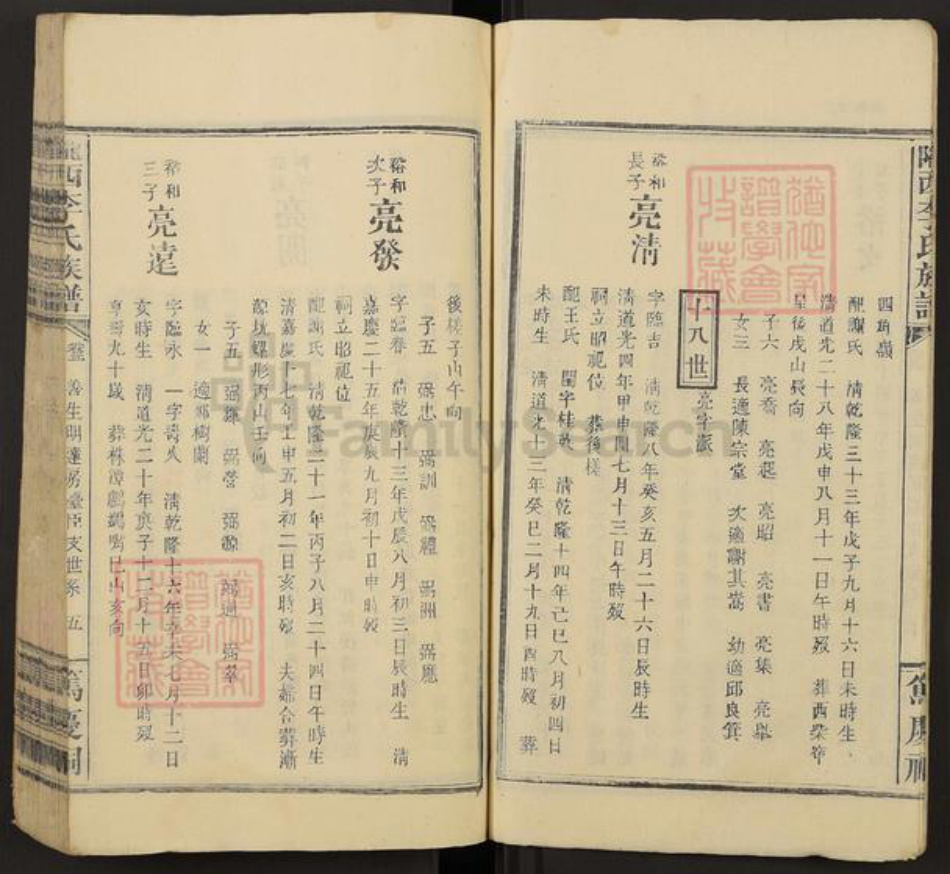 隴西李氏族譜
篤慶祠
四角嶺
配謝氏 清乾隆三十三年戊子九月十六日未時生
清道光二十八年戊申八月十一日午時歿 葬西
後戌山辰向
子六 亮喬 亮選 亮昭 亮書 亮集 亮舉
女三 長適陳宗堂 次適謝其嵩 幼適邱良箕
十八世 亮字派
裕和長子 亮清
字臨吉 清乾隆八年癸亥五月二十六日辰時生
清道光四年甲申閏七月十三日午時歿
祠立昭視位 葬後樣
配王氏 閨字桂 清乾隆十四年己巳八月初四日
未時生 清道光十三年癸巳二月十九日酉時歿 葬
後樣子山午向
子五 弼忠 弼訓 弼禮 弼洲 弼應
裕和次子 亮發
字臨春 清乾隆十三年戊辰八月初三日辰時生 清
嘉慶二十五年庚辰九月初十日申時歿
祠立昭視位
配謝氏 清乾隆二十一年丙子八月二十四日午時生
清嘉慶十七年壬申五月初二日亥時歿 夫婦合葬漸
源坑螺形丙山壬向
子五 弼 弼營 弼源 弼 弼萃
女一 適鄧樹蘭
裕和三子 亮遠
字臨永 一字壽久 清乾隆十六年辛未七月十二日
女時生 清道光二十年庚子十二月十五日卯時歿
享壽九十歲 葬株潭鸕鶿嘴巳山亥向
隴西李氏族譜
善生明達房臺臣支世系 五
篤慶祠
FamilySearch